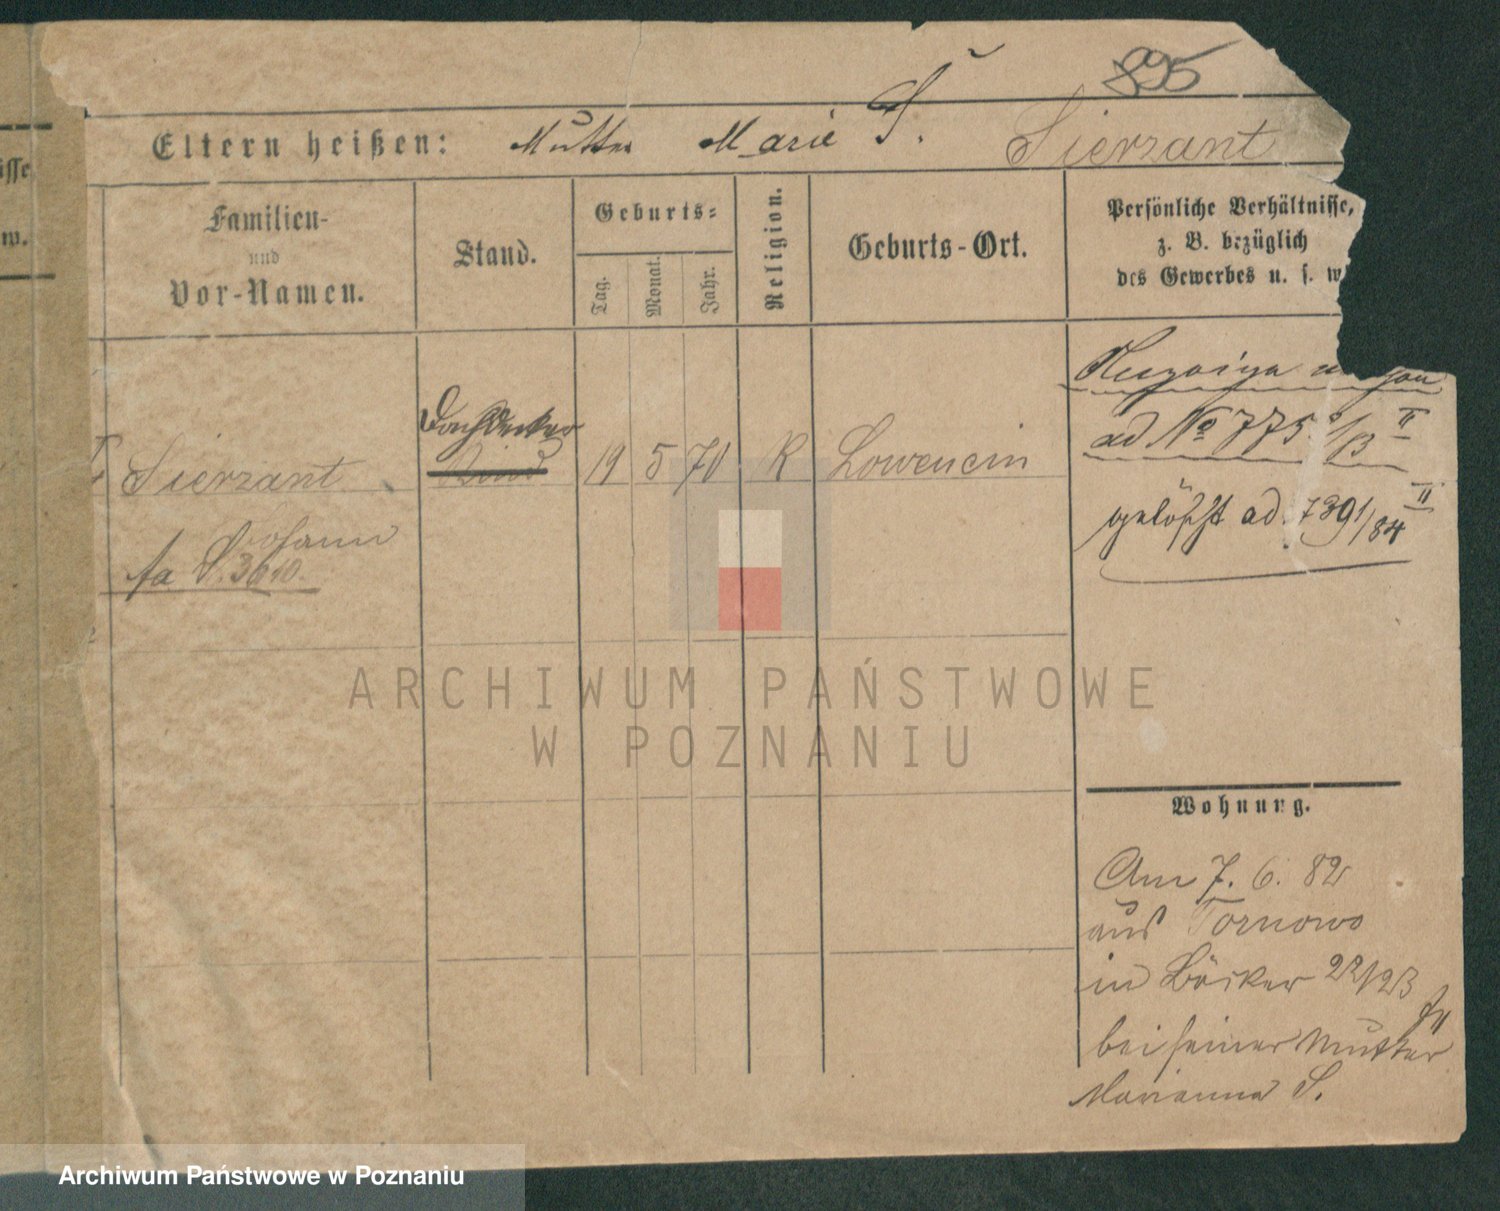 895
Eltern heißen: Mutter Marie S. Sierzant
Familien-
und
Vor-Namen.
Stand.
Geburts-
Tag.
Monat.
Jahr.
Religion.
Geburts-Ort.
Persönliche Verhältnisse,
z. B. bezüglich
des Gewerbes u. s. w
ad No 775
gelöscht ad 7391/84 II
Dachdecker
Sierzant
Kind
19 5 70 K Lowencin
Johann
fa S. 3610.
ARCHIWUM PAŃSTWOWE
W POZNANIU
Wohnung.
Am 7. 6. 82
aus Tornowo
in Bäcker 22/23
bei seiner Mutter
Marianna S.
Archiwum Państwowe w Poznaniu